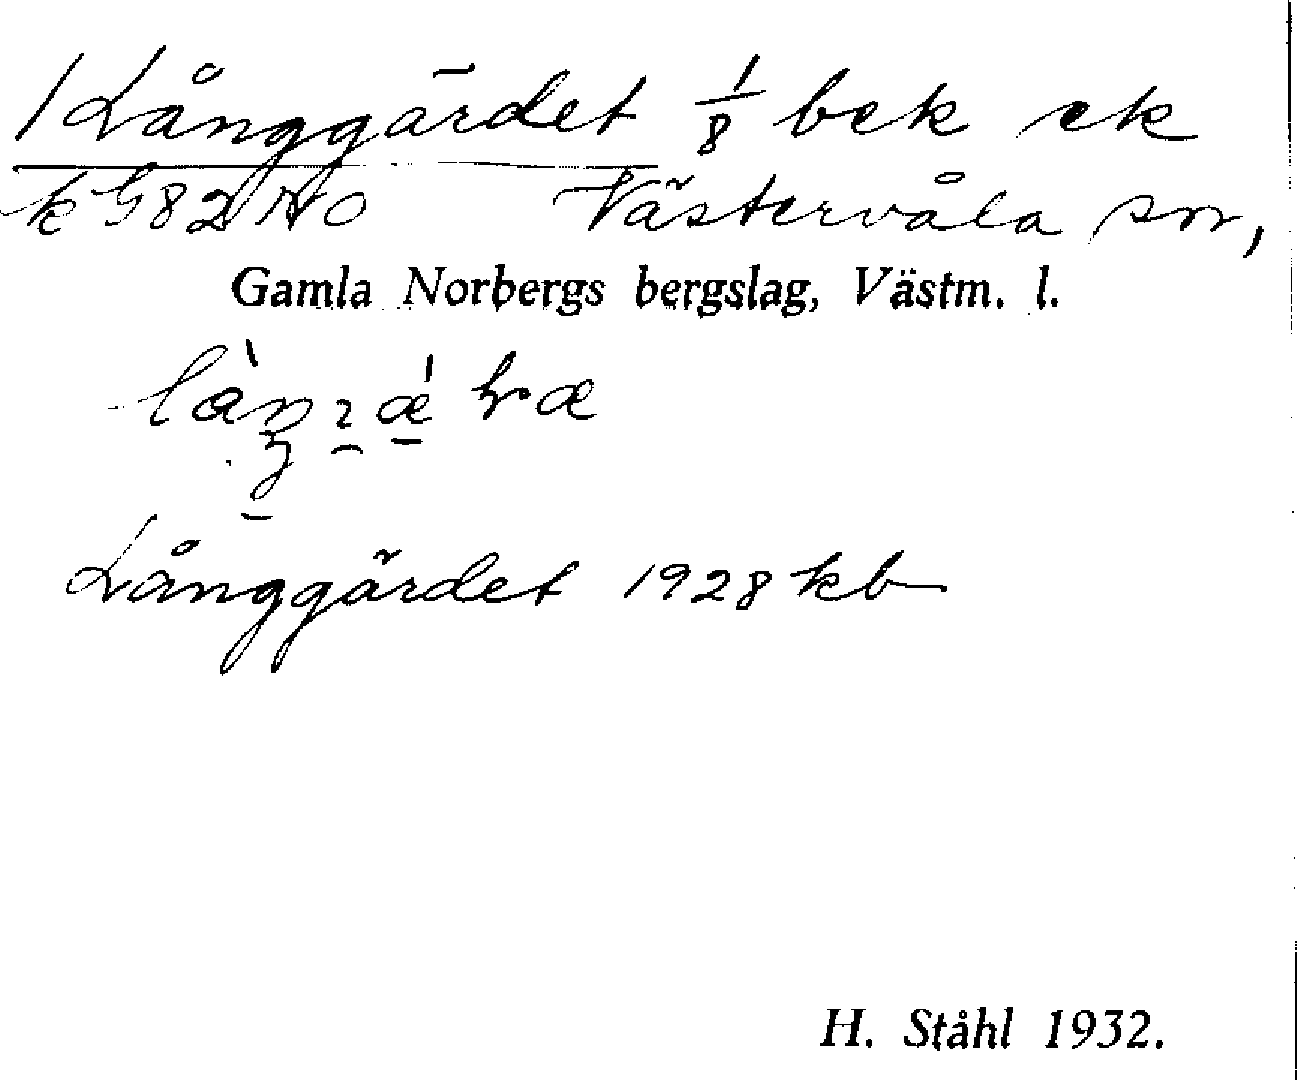 / Långgärdet 1/8 bek ek
k G82 NO Västervåla sn,
Gamla Norbergs bergslag, Västm. l.
Långgärdet 1928 kb
H. Ståhl 1932.